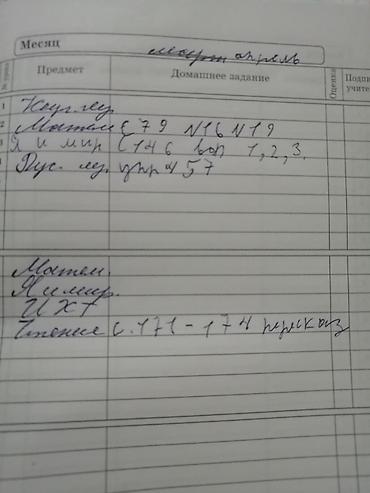 Месяц март апрель
№ урока Предмет Домашнее задание Оценка Подп учите
1 Кырг. яз.
2 Матем С 79 №16 №19
3 Я и мир С 146 воп 1, 2, 3.
4 Рус. яз. упр 457
Матем.
Я и мир.
ИХТ
Чтение с. 171-174 пересказ